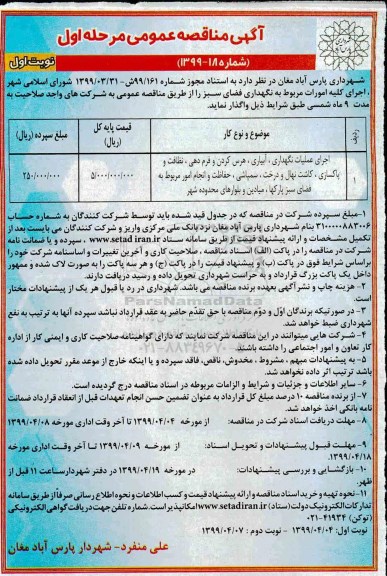 آگهی مناقصه عمومی مرحله اول
(شماره ۱۸-۱۳۹۹)
نوبت اول
شهرداری پارس آباد مغان در نظر دارد به استناد مجوز شماره ۹۹/۱۶۱ش- ۱۳۹۹/۰۳/۳۱ شورای اسلامی شهر
، اجرای کلیه امورات مربوط به نگهداری فضای سبز را از طریق مناقصه عمومی به شرکت های واجد صلاحیت به
مدت ۹ ماه شمسی طبق شرایط ذیل واگذار نماید.
ردیف
موضوع و نوع کار
قیمت پایه کل (ریال)
مبلغ سپرده (ریال)
۱
اجرای عملیات نگهداری ، آبیاری ، هرس کردن و فرم دهی ، نظافت و
پاکسازی ، کاشت نهال و درخت ، سمپاشی ، حفاظت و انجام امور مربوط به
فضای سبز پارکها ، میادین و بلوارهای محدوده شهر
۵/۰۰۰/۰۰۰/۰۰۰
۲۵۰/۰۰۰/۰۰۰
۱-مبلغ سپرده شرکت در مناقصه که در جدول قید شده باید توسط شرکت کنندگان به شماره حساب
۳۱۰۰۰۰۰۸۸۳۰۰۶ بنام شهرداری پارس آباد مغان نزد بانک ملی مرکزی واریز و شرکت کنندگان می بایست بعد از
تکمیل مشخصات و ارائه پیشنهاد قیمت از طریق سامانه ستاد www.setadiran.ir ، سپرده و یا ضمانت نامه
شرکت در مناقصه را در پاکت (الف) اسناد مناقصه ، صلاحیت کاری و آخرین تغییرات و اساسنامه شرکت خود را
براساس شرایط فوق در پاکت (ب) و پیشنهاد قیمت را در پاکت (ج) و هر سه پاکت را به صورت لاک شده و ممهور
داخل یک پاکت بزرگ قرارداد و به حراست شهرداری تحویل داده و رسید دریافت دارند.
۲- هزینه چاپ و نشر آگهی بعهده برنده مناقصه می باشد. شهرداری در رد یا قبول هر یک از پیشنهادات مختار
است.
۳- در صورتیکه برندگان اوّل و دوّم مناقصه با حق تقدّم حاضر به عقد قرارداد نباشد سپرده آنها به ترتیب به نفع
شهرداری ضبط خواهد شد.
۴- شرکت هایی میتوانند در این مناقصه شرکت نمایند که دارای گواهینامه صلاحیت کاری و ایمنی کار از اداره
کار تعاون و امور اجتماعی را داشته باشند.
۵- به پیشنهادات مبهم ، مشروط ، مخدوش ، ناقص، فاقد سپرده و یا اینکه خارج از موعد مقرر تحویل داده شده
باشد ترتیب اثر داده نخواهد شد.
۶- سایر اطلاعات و جزئیات و شرایط و الزامات مربوطه در اسناد مناقصه درج گردیده است.
۷- از برنده مناقصه ۱۰ درصد مبلغ کل قرارداد به عنوان تضمین حسن انجام تعهدات قبل از انعقاد قرارداد ضمانت
نامه بانکی اخذ خواهد شد.
۸- مهلت دریافت اسناد شرکت در مناقصه: از مورخه ۱۳۹۹/۰۴/۰۴ تا آخر وقت اداری مورخه ۱۳۹۹/۰۴/۰۸
۹- مهلت قبول پیشنهادات و تحویل اسناد: از مورخه ۱۳۹۹/۰۴/۰۹ تا آخر وقت اداری مورخه
۱۳۹۹/۰۴/۱۸
۱۰- بازگشایی و بررسی پیشنهادات: در مورخه ۱۳۹۹/۰۴/۱۹ در دفتر شهردار ساعت ۱۱ قبل از
ظهر
۱۱- نحوه تهیه و خرید اسناد مناقصه و ارائه پیشنهاد قیمت و کسب اطلاعات و نحوه اطلاع رسانی صرفاً از طریق سامانه
تدارکات الکترونیکی دولت (ستاد) www.setadiran.ir امکانپذیر است. شماره تلفن جهت دریافت گواهی الکترونیکی
(توکن) ۴۱۹۳۴-۰۲۱
نوبت اول: ۱۳۹۹/۰۴/۰۴ - نوبت دوم : ۱۳۹۹/۰۴/۰۷
علی منفرد- شهردار پارس آباد مغان
ParsNamadData